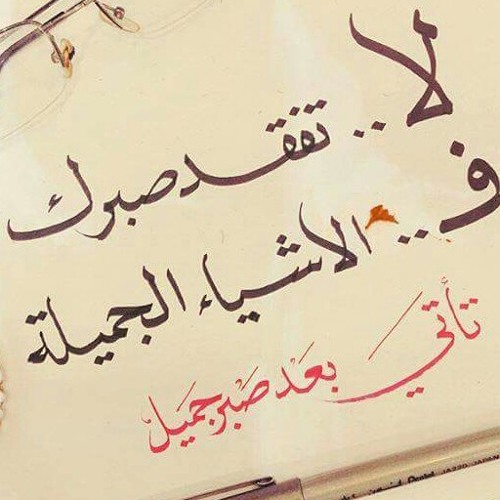 لا.. تفقد صبرك
ف.. الاشياء الجميلة
تأتي بعَد صَبر جَميَل
Pentel JAPAN